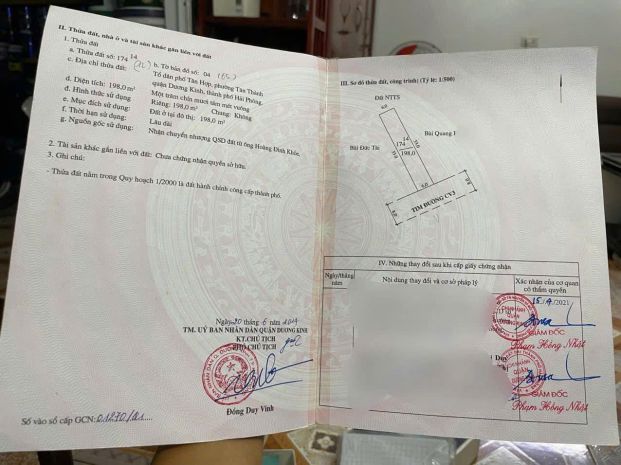 II. Thửa đất, nhà ở và tài sản khác gắn liền với đất
1. Thửa đất
a. Thửa đất số: 174 14
b. Tờ bản đồ số: 04
c. Địa chỉ thửa đất: Tổ dân phố Tân Hợp, phường Tân Thành
quận Dương Kinh, thành phố Hải Phòng.
d. Diện tích: 198,0 m² Một trăm chín mươi tám mét vuông
đ. Hình thức sử dụng Riêng: 198,0 m² Chung: Không
e. Mục đích sử dụng: Đất ở tại đô thị: 198,0 m²
f. Thời hạn sử dụng: Lâu dài
g. Nguồn gốc sử dụng: Nhận chuyển nhượng QSD đất từ ông Hoàng Đình
2. Tài sản khác gắn liền với đất: Chưa chứng nhận quyền sở hữu.
3. Ghi chú:
- Thửa đất nằm trong Quy hoạch 1/2000 là đất hành chính công cấp thành phố.
Ngày 20 tháng 6 năm 2014
TM. UỶ BAN NHÂN DÂN QUẬN DƯƠNG KINH
KT.CHỦ TỊCH
PHÓ CHỦ TỊCH
Đồng Duy Vinh
Số vào sổ cấp GCN:
III. Sơ đồ thửa đất, công trình: (Tỷ lệ: 1/500)
Đất NTTS
Bùi Đức Tài
Bùi Quang
14
174
198,0
TIM ĐƯỜNG CV3
IV. Những thay đổi sau khi cấp giấy chứng nhận
Ngày/tháng năm
Nội dung thay đổi và cơ sở pháp lý
Xác nhận của cơ quan có thẩm quyền
GIÁM ĐỐC
Phạm Hồng Nhật
GIÁM ĐỐC
Phạm Hồng Nhật